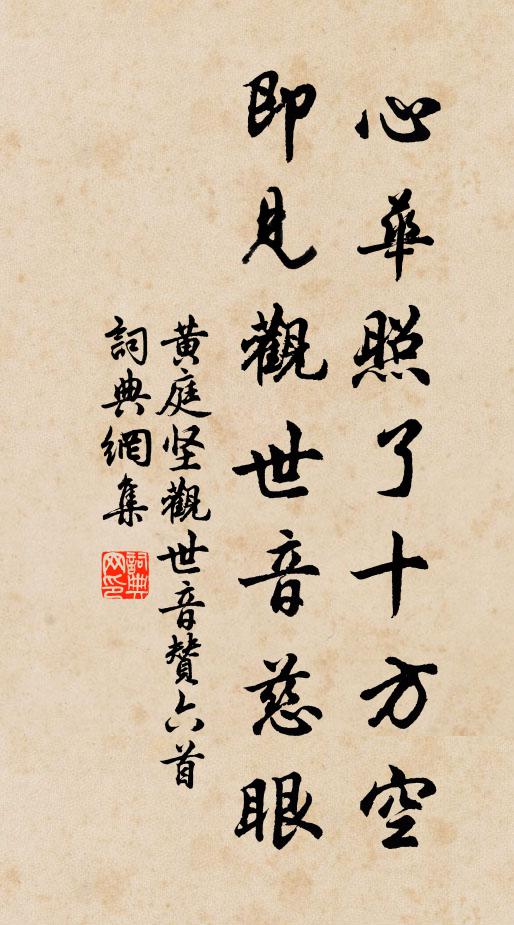 心華照了十方空
即見觀世音慈眼
黄庭坚觀世音贊六首
詞典網集
詞典网印